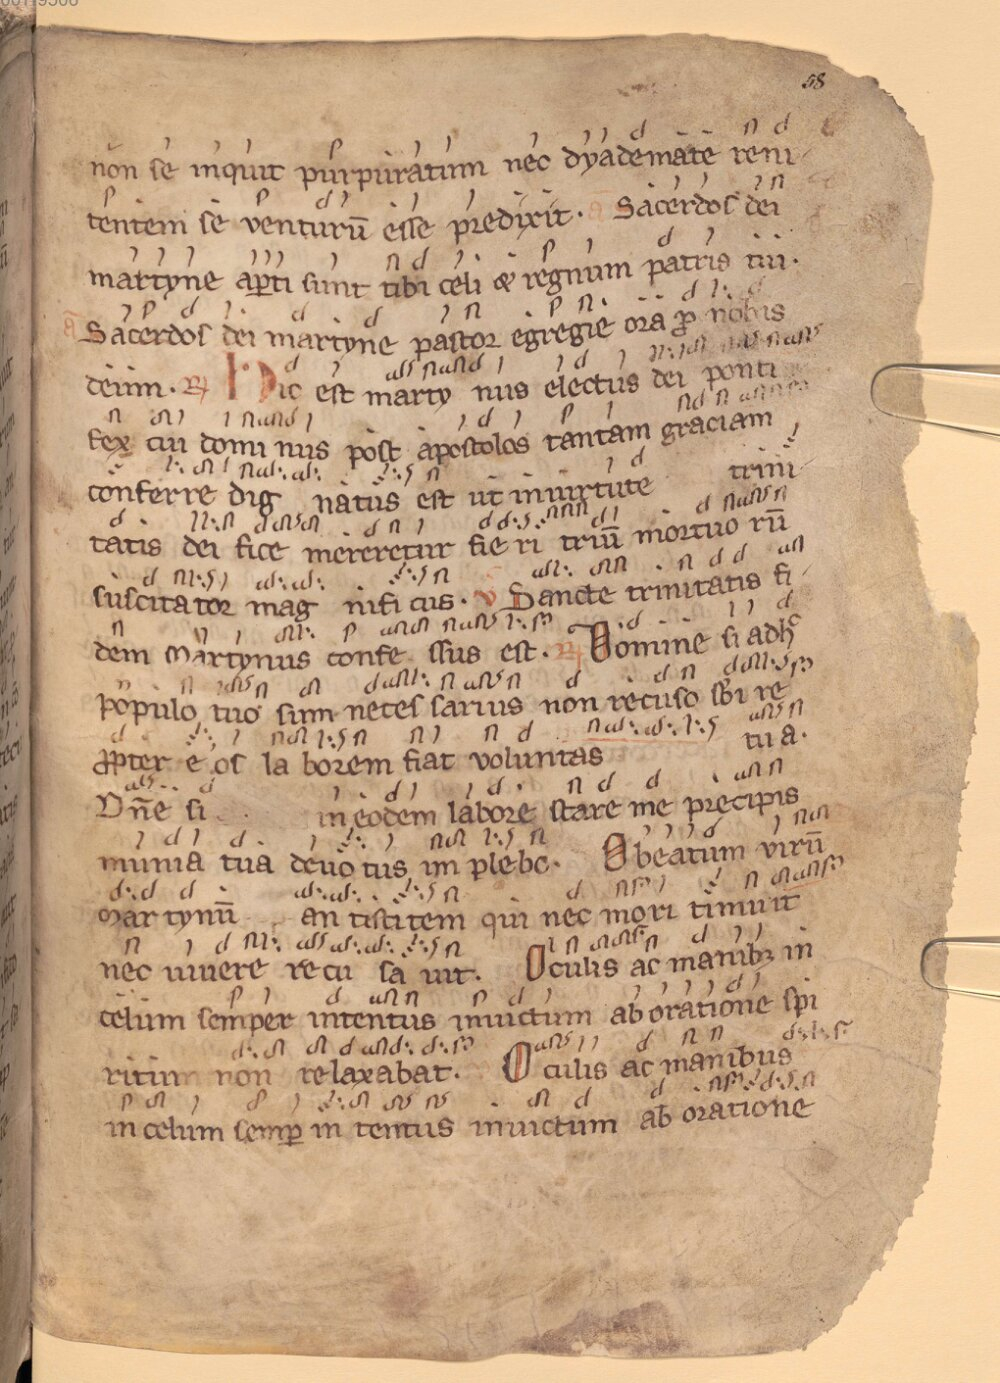 58
non se inquit purpuratum nec dyademate reni
tentem se venturū esse predixit. a Sacerdos dei
martyne apti sunt tibi celi & regnum patris tui.
a Sacerdos dei martyne pastor egregie ora ꝓ nobis
deum. R Hic est marty nus electus dei ponti
fex cui domi nus post apostolos tantam graciam
conferre dig natus est ut in uirtute trini
tatis dei fice mereretur fie ri triū mortuo rū
suscitator mag nifi cus. v Sancte trinitatis fi
dem Martynus confe ssus est. R Domine si adhc
populo tuo sum neces sarius non recuso sbi re
ꝓpter e os la borem fiat voluntas tua.
Dn̄e si in eodem labore stare me precipis
munia tua deuo tus im plebo. O beatum virū
Mar tynū an tistitem qui nec mori timuit
nec uiuere recu sa uit. Oculis ac manibꝫ in
celum semper intentus inuictum ab oratione spi
ritum non relaxabat. Oculis ac manibus
in celum semꝑ in tentus inuictum ab oratione